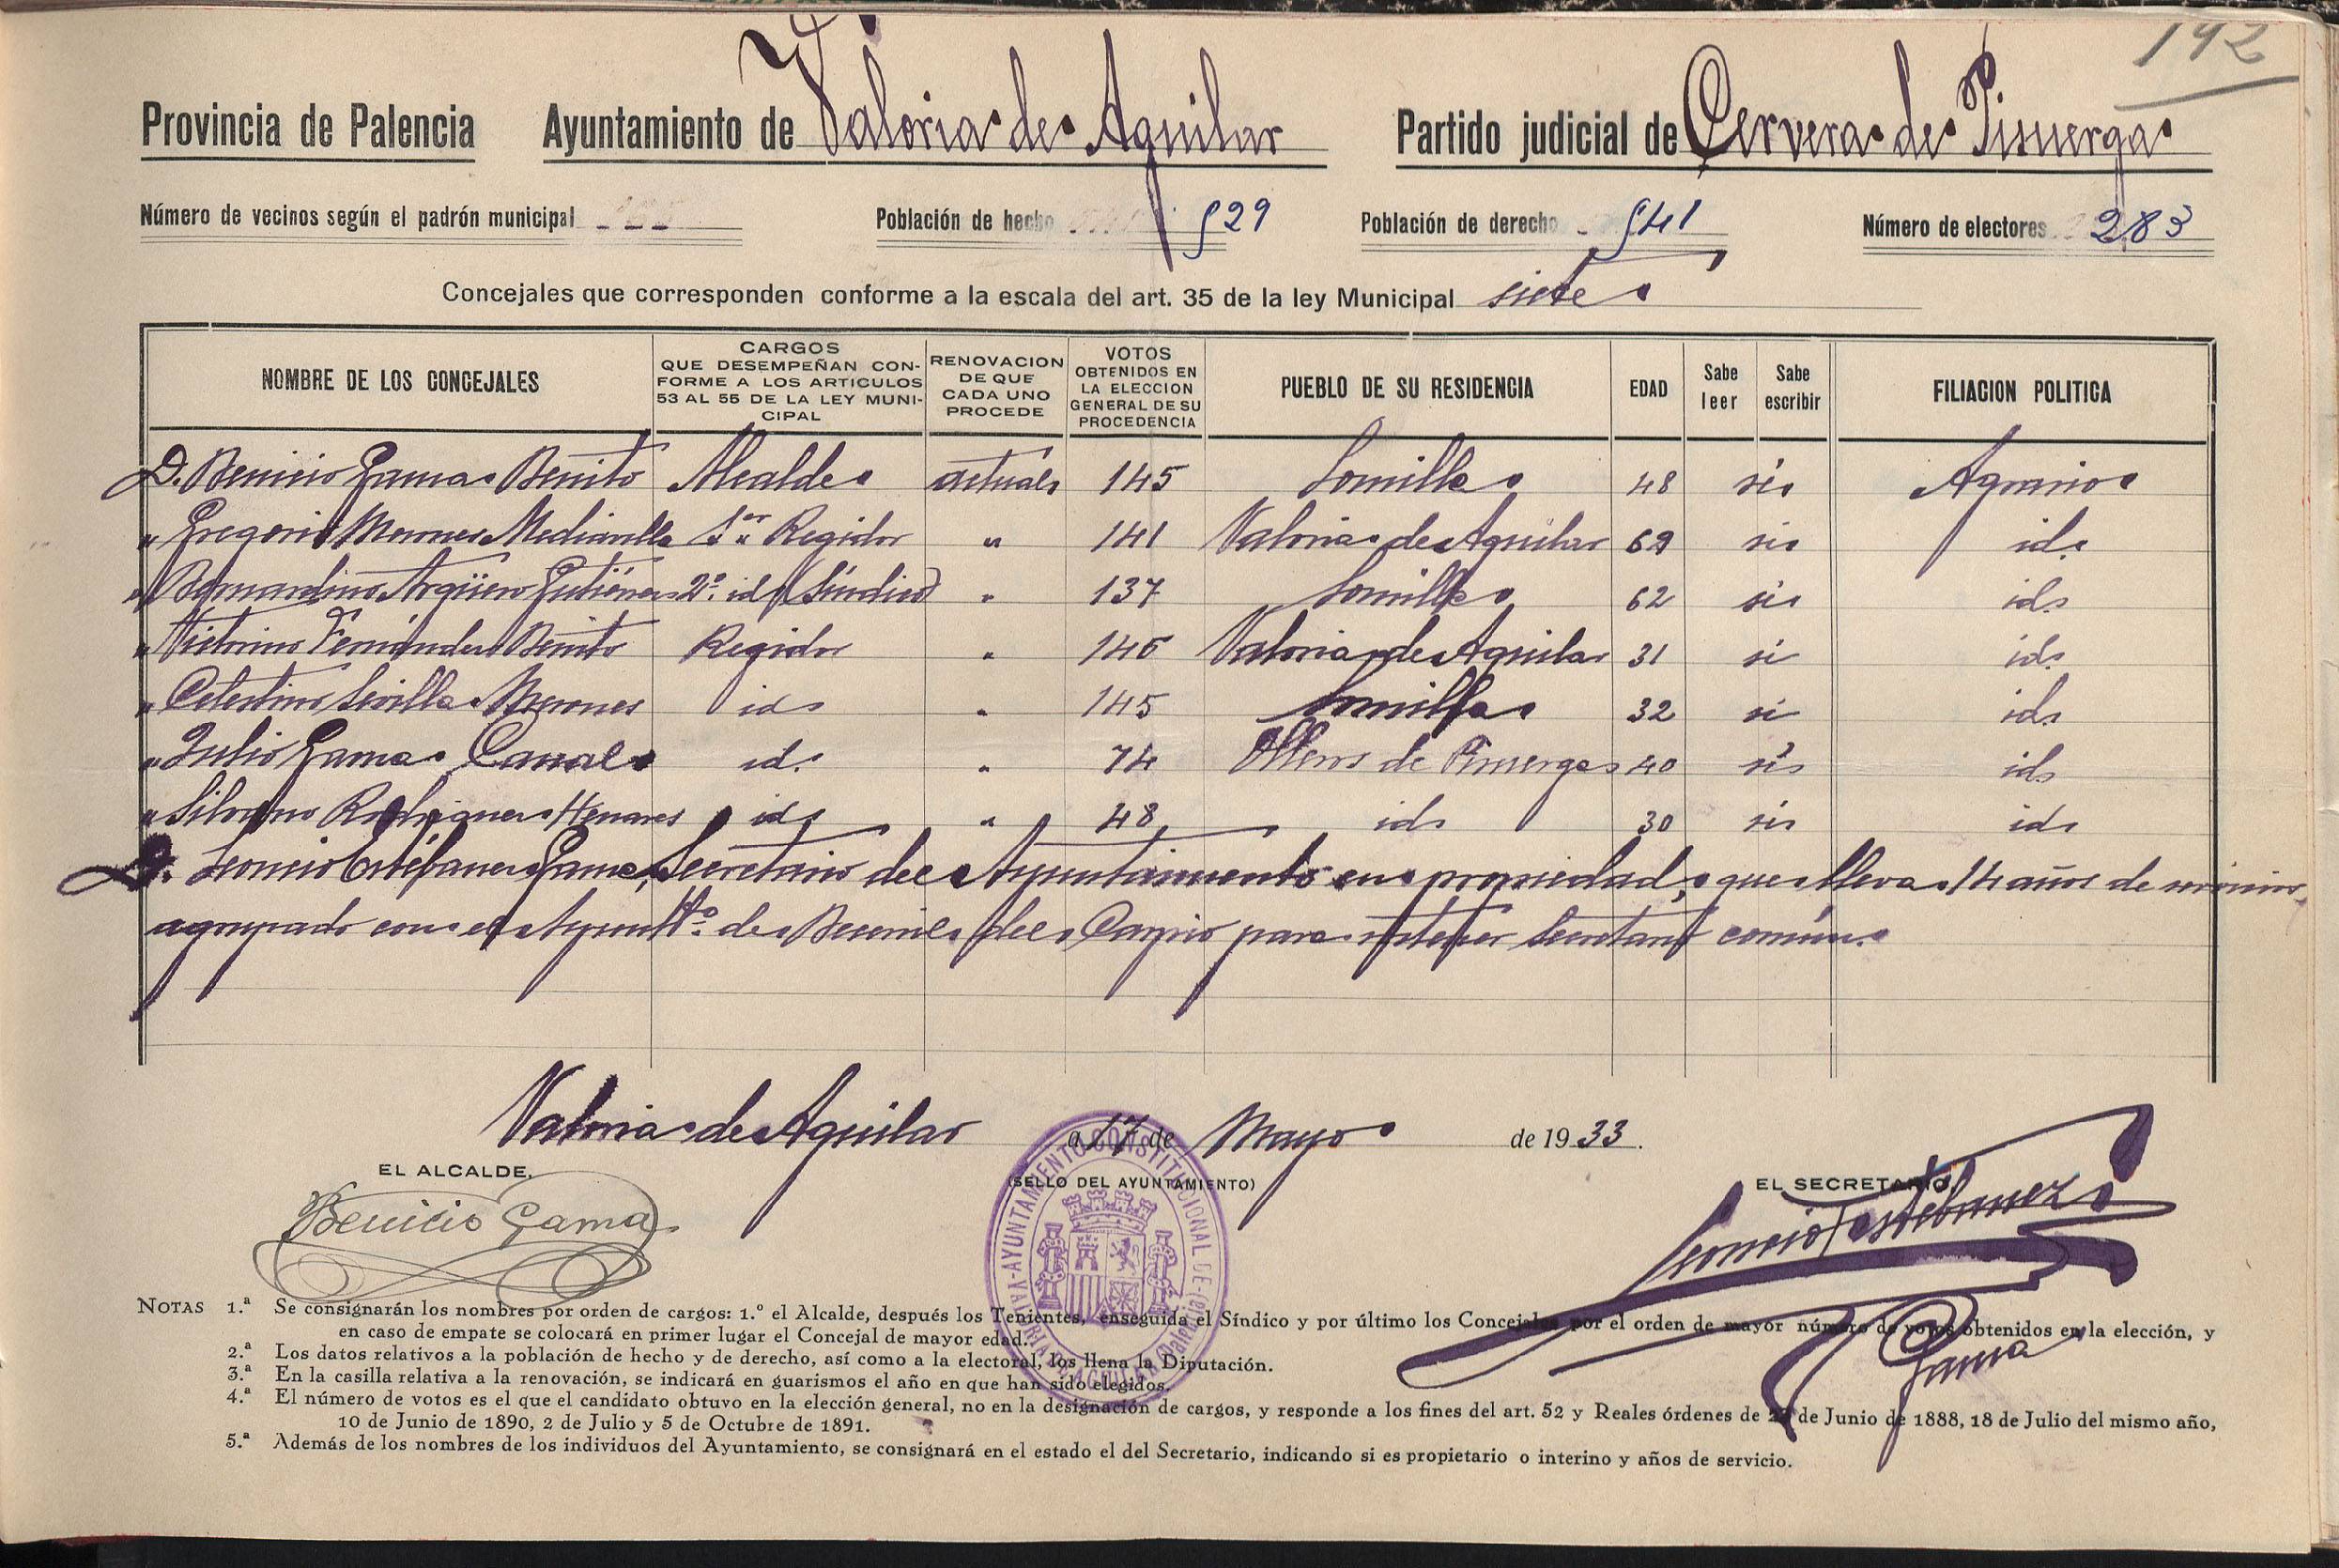 142
Provincia de Palencia Ayuntamiento de Valoria de Aguilar Partido judicial de Cervera de Pisuerga
Número de vecinos según el padrón municipal Población de hecho 529 Población de derecho 541 Número de electores 283
Concejales que corresponden conforme a la escala del art. 35 de la ley Municipal siete
NOMBRE DE LOS CONCEJALES
CARGOS
QUE DESEMPEÑAN CON-
FORME A LOS ARTICULOS
53 AL 55 DE LA LEY MUNI-
CIPAL
RENOVACION
DE QUE
CADA UNO
PROCEDE
VOTOS
OBTENIDOS EN
LA ELECCION
GENERAL DE SU
PROCEDENCIA
PUEBLO DE SU RESIDENCIA
EDAD
Sabe
leer
Sabe
escribir
FILIACION POLITICA
D. Benicio Gama Benito Alcalde actual 145 Lomilla 48 si Agrario
" Gregorio Merones Medianilla 1er Regidor " 141 Valoria de Aguilar 69 si id.
" Bernardino Argüeso Gutiérrez 2º id (Síndico) " 137 Lomilla 62 si id.
" Victorino Fernández Benito Regidor " 145 Valoria de Aguilar 31 si id.
" Celestino Sevilla Merones id " 145 Lomilla 32 si id.
" Julio Gama Canal id. " 74 Olleros de Pisuerga 40 si id
" Silvano Rodríguez Henares id " 48 id 30 si id
D. Leoncio Estébanez Gama, Secretario del Ayuntamiento en propiedad, que lleva 14 años de servicios,
agrupado con el Ayunttº de Becerril del Carpio para sostener Secretario común.
Valoria de Aguilar a 17 de Mayo de 1933.
EL ALCALDE,
(SELLO DEL AYUNTAMIENTO)
EL SECRETARIO
Benicio Gama
Leoncio Estebanez
Gama
AYUNTAMIENTO CONSTITUCIONAL DE VALORIA DE AGUILAR (Palencia)
NOTAS 1.ª Se consignarán los nombres por orden de cargos: 1.º el Alcalde, después los Tenientes, enseguida el Síndico y por último los Concejales por el orden de mayor número de votos obtenidos en la elección, y
en caso de empate se colocará en primer lugar el Concejal de mayor edad.
2.ª Los datos relativos a la población de hecho y de derecho, así como a la electoral, los llena la Diputación.
3.ª En la casilla relativa a la renovación, se indicará en guarismos el año en que han sido elegidos.
4.ª El número de votos es el que el candidato obtuvo en la elección general, no en la designación de cargos, y responde a los fines del art. 52 y Reales órdenes de de Junio de 1888, 18 de Julio del mismo año,
10 de Junio de 1890, 2 de Julio y 5 de Octubre de 1891.
5.ª Además de los nombres de los individuos del Ayuntamiento, se consignará en el estado el del Secretario, indicando si es propietario o interino y años de servicio.